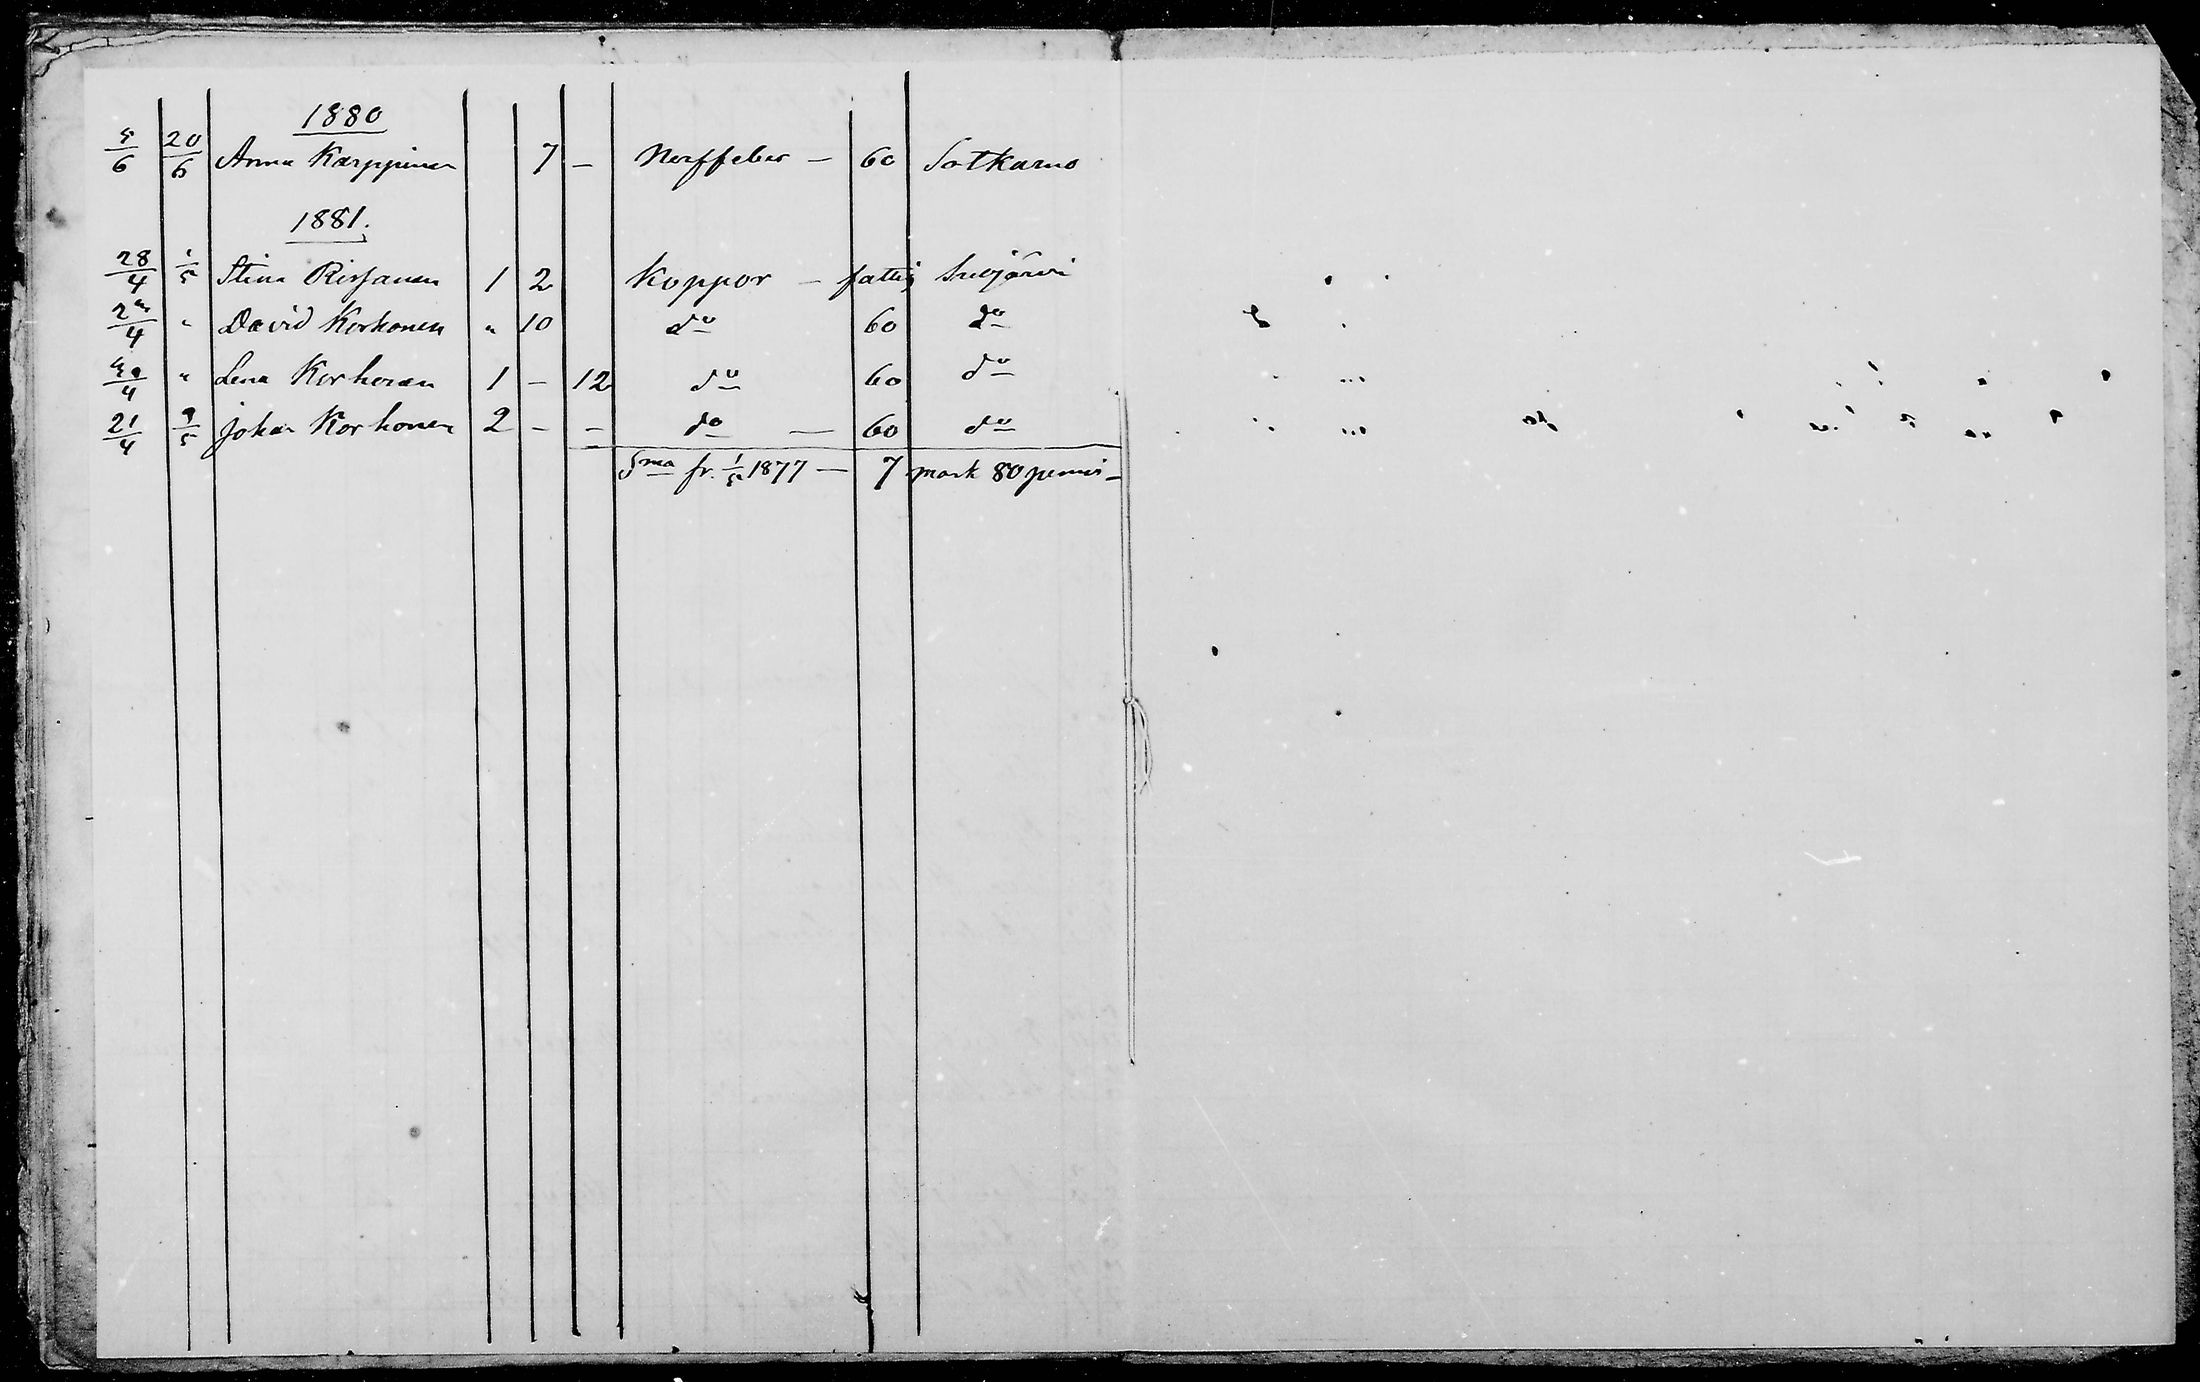 1880
5/6 20/6 Anna Karppinen 7 — Nerffeber — 60 Sotkamo
1881.
28/4 1/5 Stina 1 2 Koppor — fattig
/4 " David Korhonen " 10 do 60 do
/4 " Lena Korhonen 1 — 12 do 60 do
21/4 9/5 Johan Korhonen 2 — — do — 60 do
Sma fr. 1/5 1877 — 7 mark 80 penni —